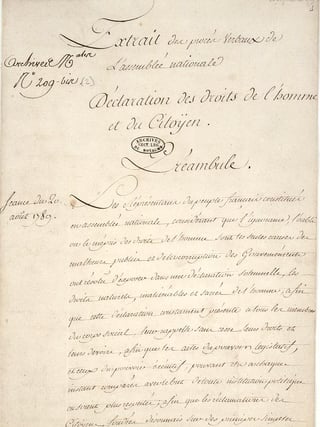 Extrait des procès Verbaux de
L'assemblée nationale
Archives N.ales
N.o 209-bis (2)
Déclaration des droits de l'homme
et du Citoyen.
ARCHIVES
Préambule.
Séance du 20
août 1789.
Les Représentans du peuple français constitués
en assemblée nationale, considérant que l'ignorance, l'oubli
ou le mépris des droits de l'homme sont les seules causes des
malheurs publics et de la corruption des Gouvernements
ont résolu d'exposer dans une déclaration solemnelle, les
droits naturels, inaliénables et sacrés de l'homme; afin
que cette déclaration constamment présente à tous les membres
du corps social, leur rappelle sans cesse leurs droits et
leurs devoirs; afin que les actes du pouvoir législatif,
et ceux du pouvoir exécutif, pouvant être à chaque
instant comparés avec le but de toute institution politique
en soient plus respectés; afin que les réclamations des
Citoyens, fondées désormais sur des principes simples